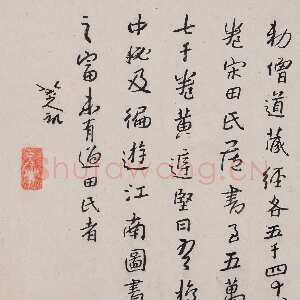 勅僧道藏經各五千四十
卷宋田氏居書至五萬
七千卷黃庭堅曰吾於
中秘及徧遊江南圖書
之富未有過田氏者
八大山人
Shufawang.CN